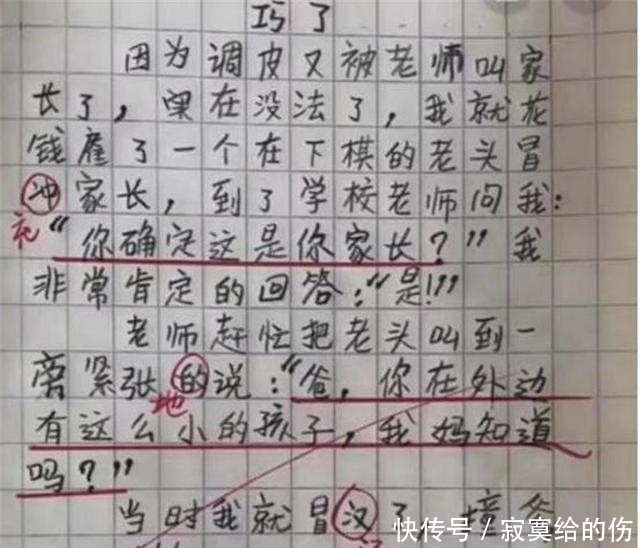 巧了
因为调皮又被老师叫家
长了，実在没法了，我就花
钱雇了一个在下棋的老头冒
冲家长，到了学校老师问我：
充
“你确定这是你家长？”我
非常肯定的回答：“是！”
老师赶忙把老头叫到一
旁紧张的说：“爸，你在外边
地
有这么小的孩子，我妈知道
吗？”
当时我就冒汉了
快传号／寂寞给的伤